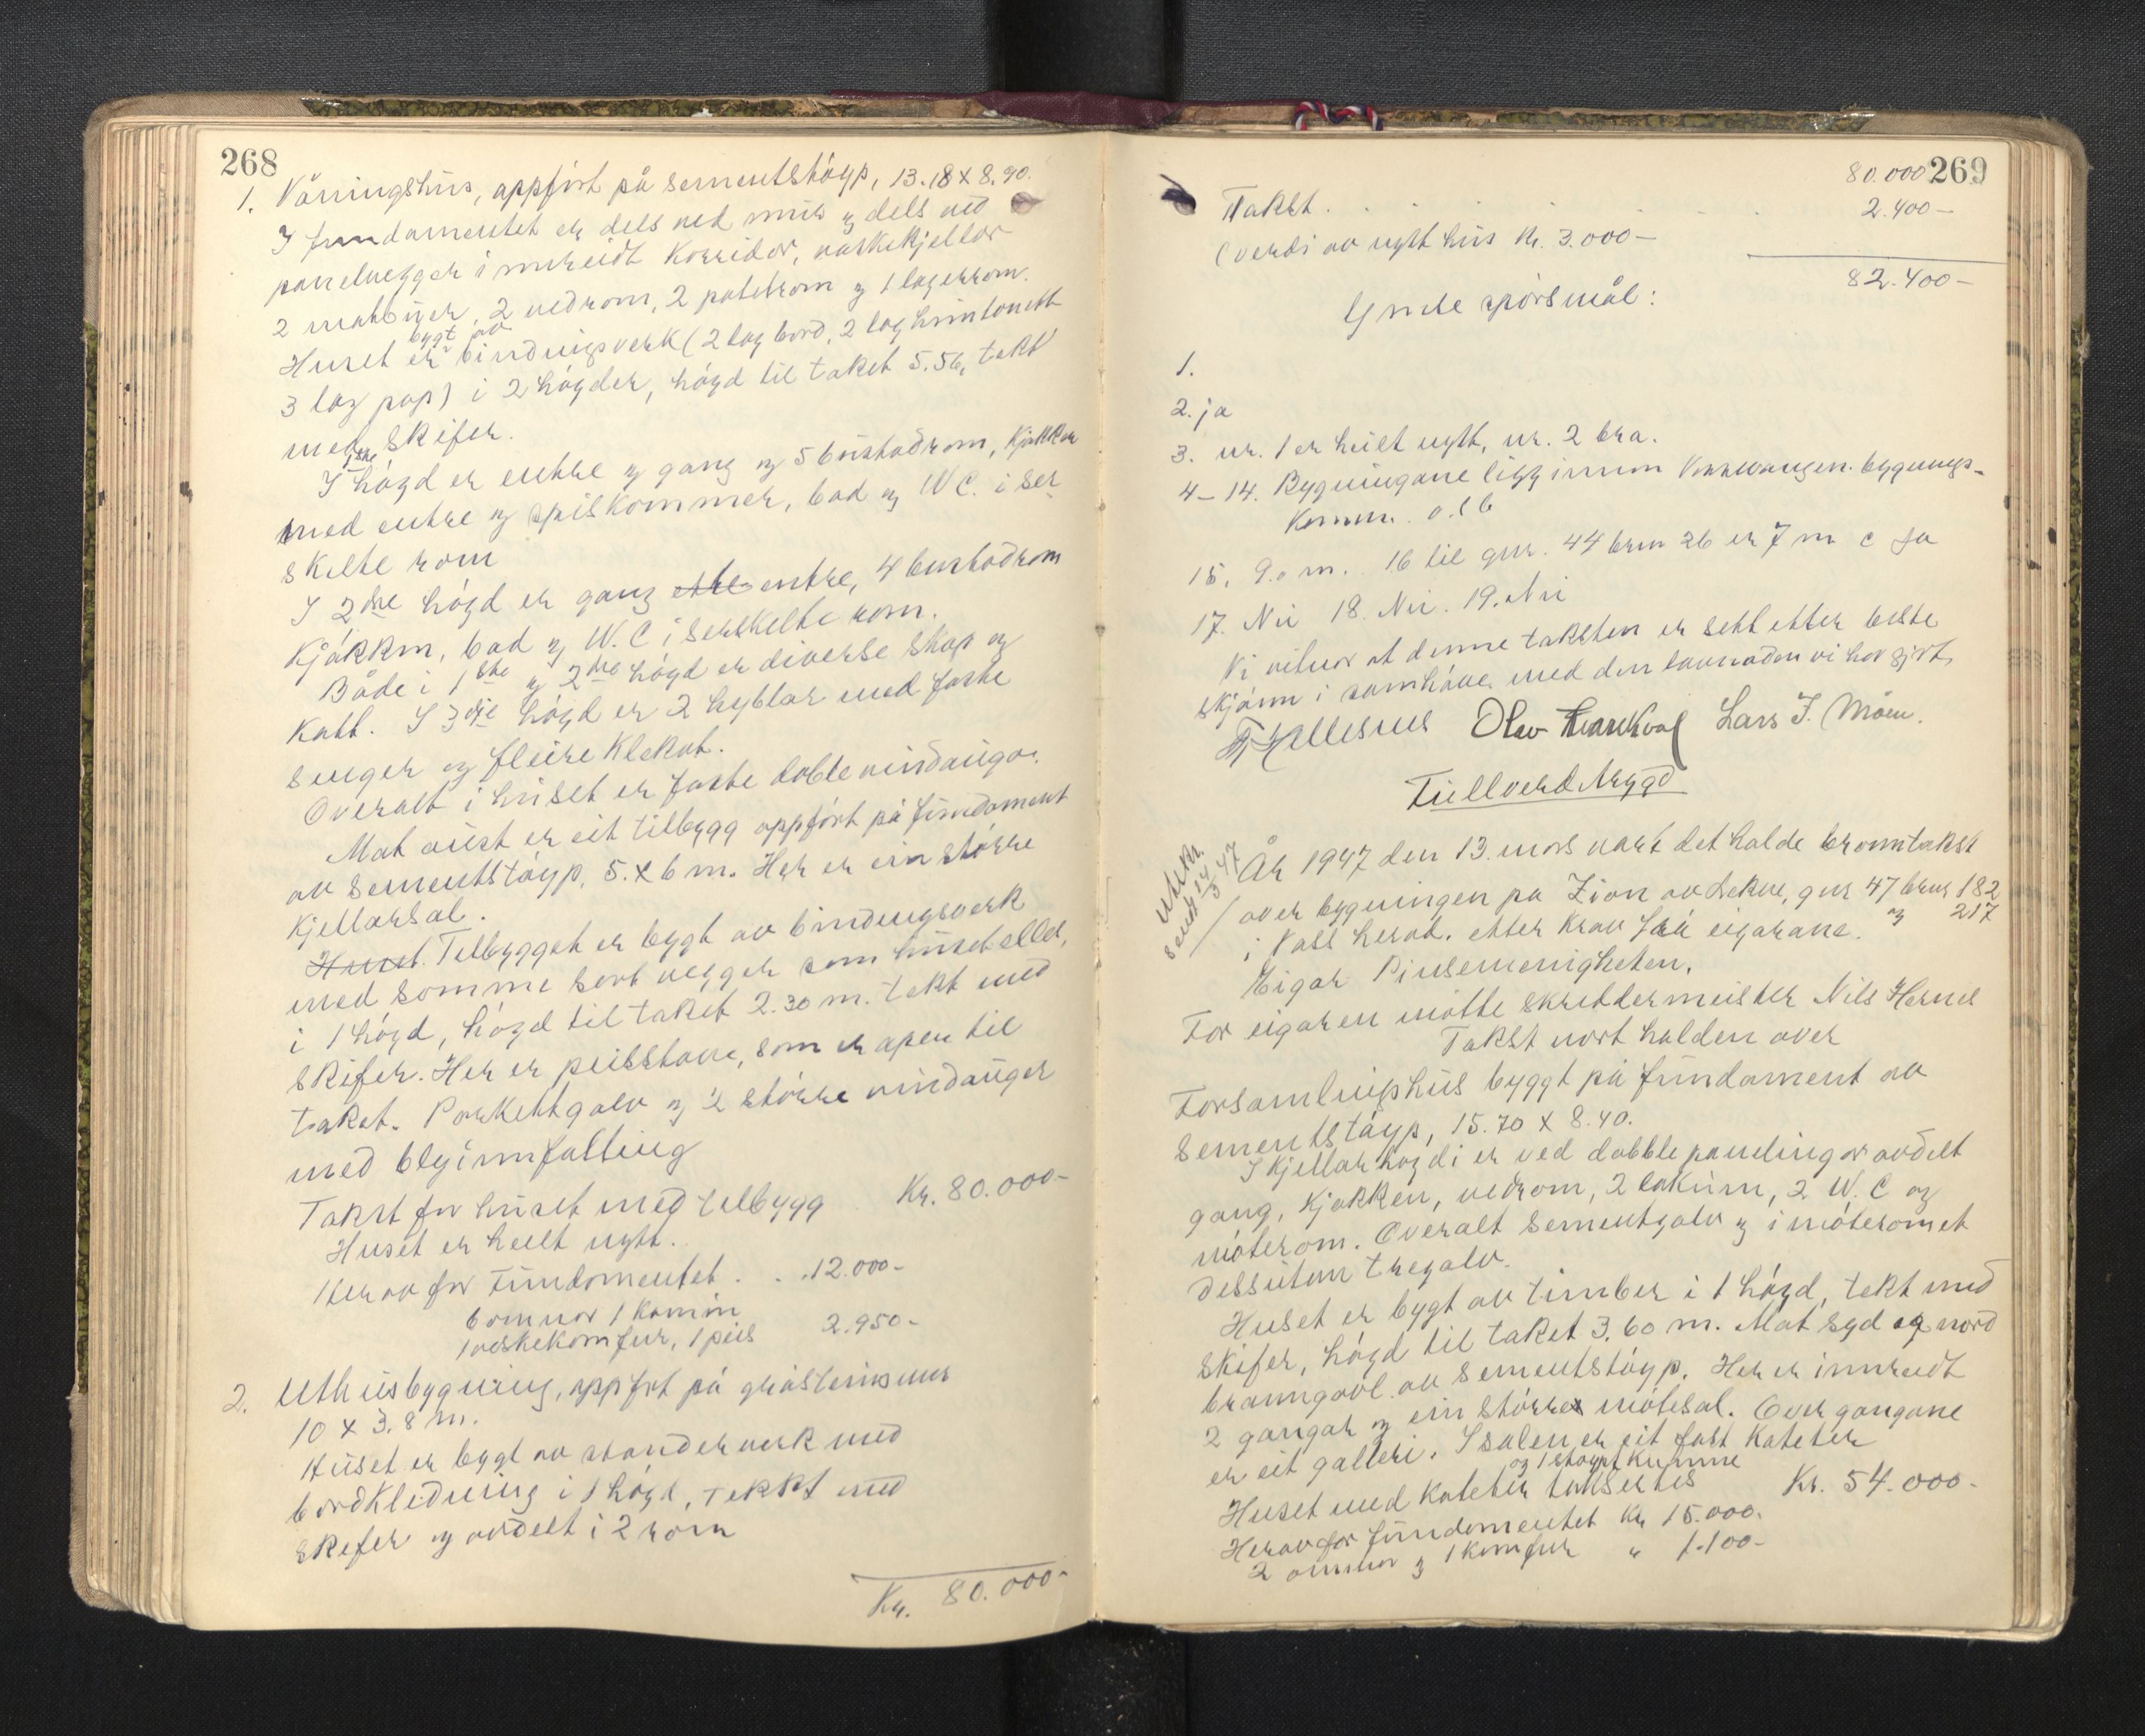 268
1. Våningshus, oppført på sementstøyp, 13.18 x 8.90.
I fundamentet er dels ved mur og dels ved
panelvegger innreidt korridor, vaskekjellar
2 matboder, 2 vedrom, 2 potetrom og 1 lagerrom.
bygt av
Huset er bindingsverk (2 lag bord, 2 lag huntonitt
3 lag pap) i 2 høgder, høgd til taket 5.56, tekt
med skifer.
I 1ste høgd er entre og gang og 5 bustadrom, kjøkken
med entre og spiskammer, bad og W C. i ser
skilte rom
I 2dre høgd er gang entre, 4 bustadrom
kjøkken, bad og W. C i serskilte rom.
Både i 1ste og 2dre høgd er diverse skap og
kott. I 3dje høgd er 2 hyblar med faste
senger og fleire klekot.
Overalt i huset er faste doble vindaugo.
Mot aust er eit tilbygg oppført på fundament
av sementstøyp, 5. x 6 m. Her er ein større
kjellarsal.
Huset. Tilbygget er bygt av bindingsverk
med somme sort vegger som huset elles,
i 1 høgd, høgd til taket 2.30 m. tekt med
skifer. Her er peisstove, som er open til
taket. Parkettgolv og 2 større vindauger
med blyinnfatting
Takst for huset med tilbygg Kr. 80.000-
Huset er heilt nytt.
Herav for fundamentet . . . 12.000-
6 omnar 1 kamin
1 vaskekomfur, 1 peis 2.950-
2. Uthusbygning, oppført på gråsteinsmur
10 x 3.8 m.
Huset er bygt av standerverk med
bordkledning i 1 høgd, tekkt med
skifer og avdelt i 2 rom
Kr. 80.000-
269
80.000
Takst . . . . . . 2.400-
(verdi av nytt hus kr. 3.000-
82.400-
Ymse spørsmål:
1.
2. ja
3. nr. 1 er heilt nytt, nr. 2 bra.
4-14. Bygningane ligg innum Vossevangen bygnings-
komm. o. s b
15. 9.0 m. 16 til gnr. 44 brn 26 er 7 m c Ja
17. Nei 18. Nei. 19. Nei
Vi vitnar at denne taksten er sett etter beste
skjønn i samhøve med den lovnaden vi har gjort.
Olav Lars J. Møen.
Fullverdtrygd
Utskr.
sendt 14/5 47
År 1947 den 13. mars vart det halde branntakst
over bygningen på Zion av Lekve, gnr 47 brnr 182
i Voss herad. etter krav frå eigarane. og 217
Eigar Pinsemenigheten.
For eigaren møtte skreddermeister Nils Hernes
Takst vart halden over
Forsamlingshus byggt på fundament av
sementstøyp, 15.70 x 8.40.
I kjellarhøgdi er ved dobble panelingar avdelt
gang, kjøkken, vedrom, 2 vakuum, 2 W. C og
møterom. Overalt sementgolv og i møteromet
dessutan tregolv.
Huset er bygt av timber i 1 høgd, tekt med
skifer, høgd til taket 3.60 m. Mot syd og nord
branngavl av sementstøyp. Her er innreidt
2 gangar og ein større møtesal. Over gangane
er eit galleri. I salen er eit fast kateter
og 1 støypt kumme
Huset med kateter taksertes Kr. 54.000-
Herav for fundamentet kr 15.000.
2 omnar og 1 komfur " 1.100-